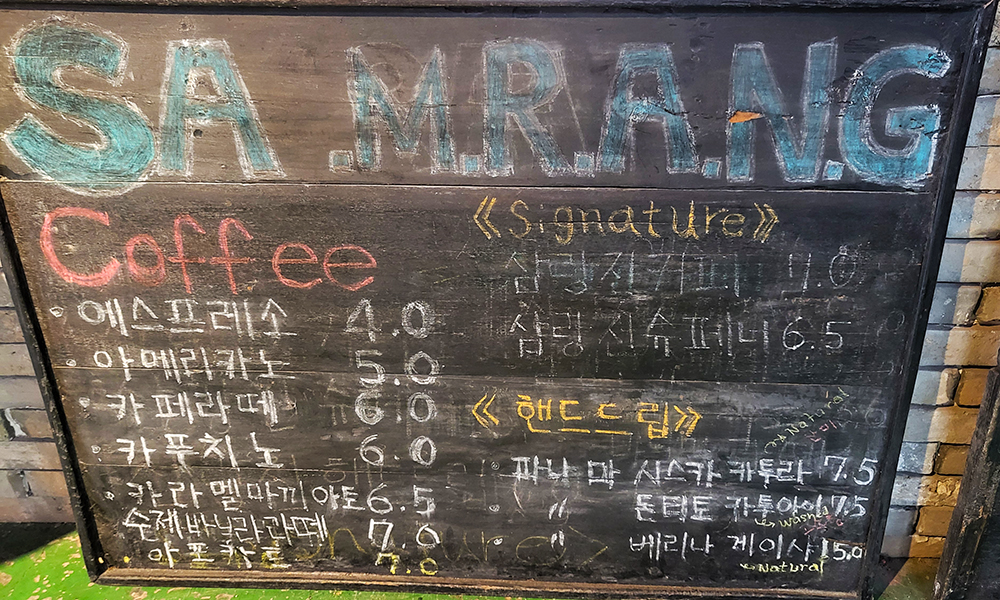 SA.M.R.A.N.G
Coffee
· 에스프레소 4.0
· 아메리카노 5.0
· 카페라떼 6.0
· 카푸치노 6.0
· 카라멜마끼아토 6.5
수제바닐라라떼 7.0
· 아포카토 7.0
《Signature》
삼랑진커피 7.0
삼랑진슈페너 6.5
《핸드드립》
Natural
· 파나마 시스카 카투라 7.5
· ( 〃 돈티토 카투아이 7.5
Washed
· 〃 베리나 게이샤 15.0
Natural